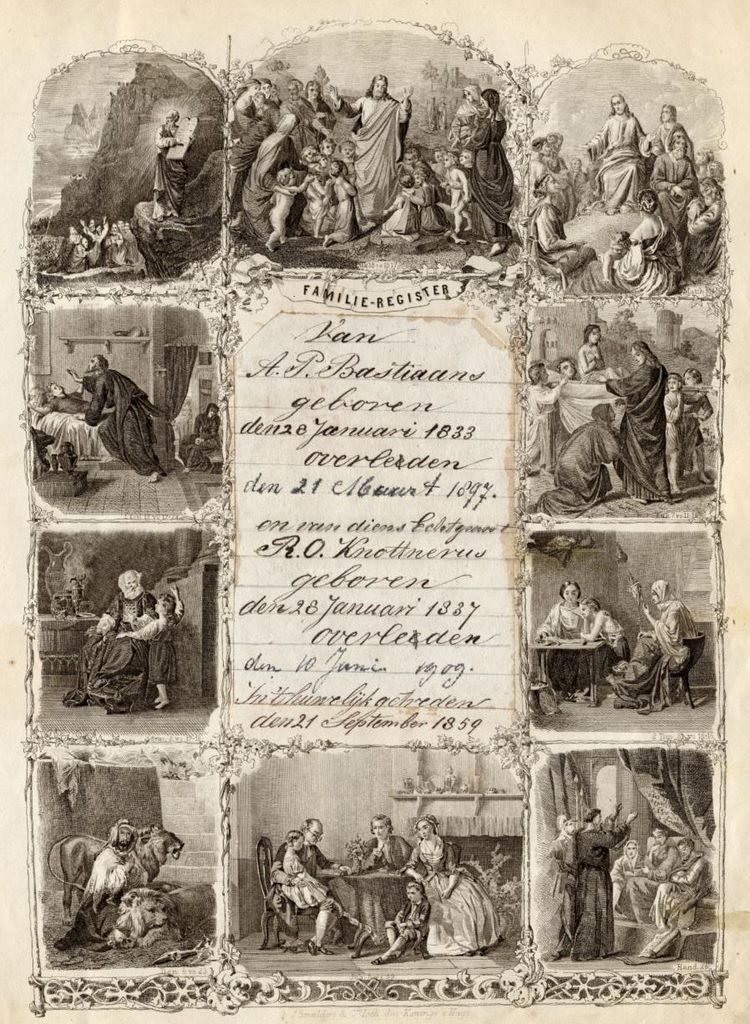 FAMILIE-REGISTER
Van
A. P. Bastiaans
geboren
den 28 Januari 1833
overleden
den 21 Maart 1897.
en van diens Echtgenoot
R. O. Knottnerus
geboren
den 28 Januari 1837
overleden
den 10 Juni 1909.
In 't huwelijk getreden
den 21 September 1859